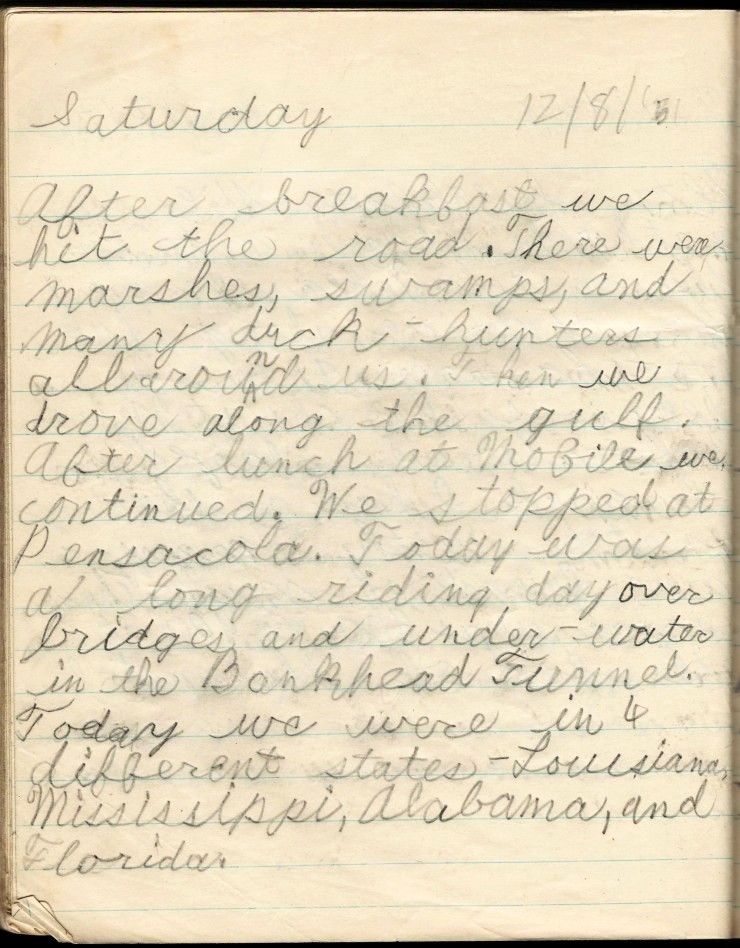 Saturday 12/8/'51
After breakfast we
hit the road. There were
marshes, swamps, and
many duck-hunters
all around us. Then we
drove along the gulf.
After lunch at Mobile we
continued. We stopped at
Pensacola. Today was
a long riding day over
bridges and under-water
in the Bankhead Tunnel.
Today we were in 4
different states - Louisiana,
Mississippi, Alabama, and
Florida.